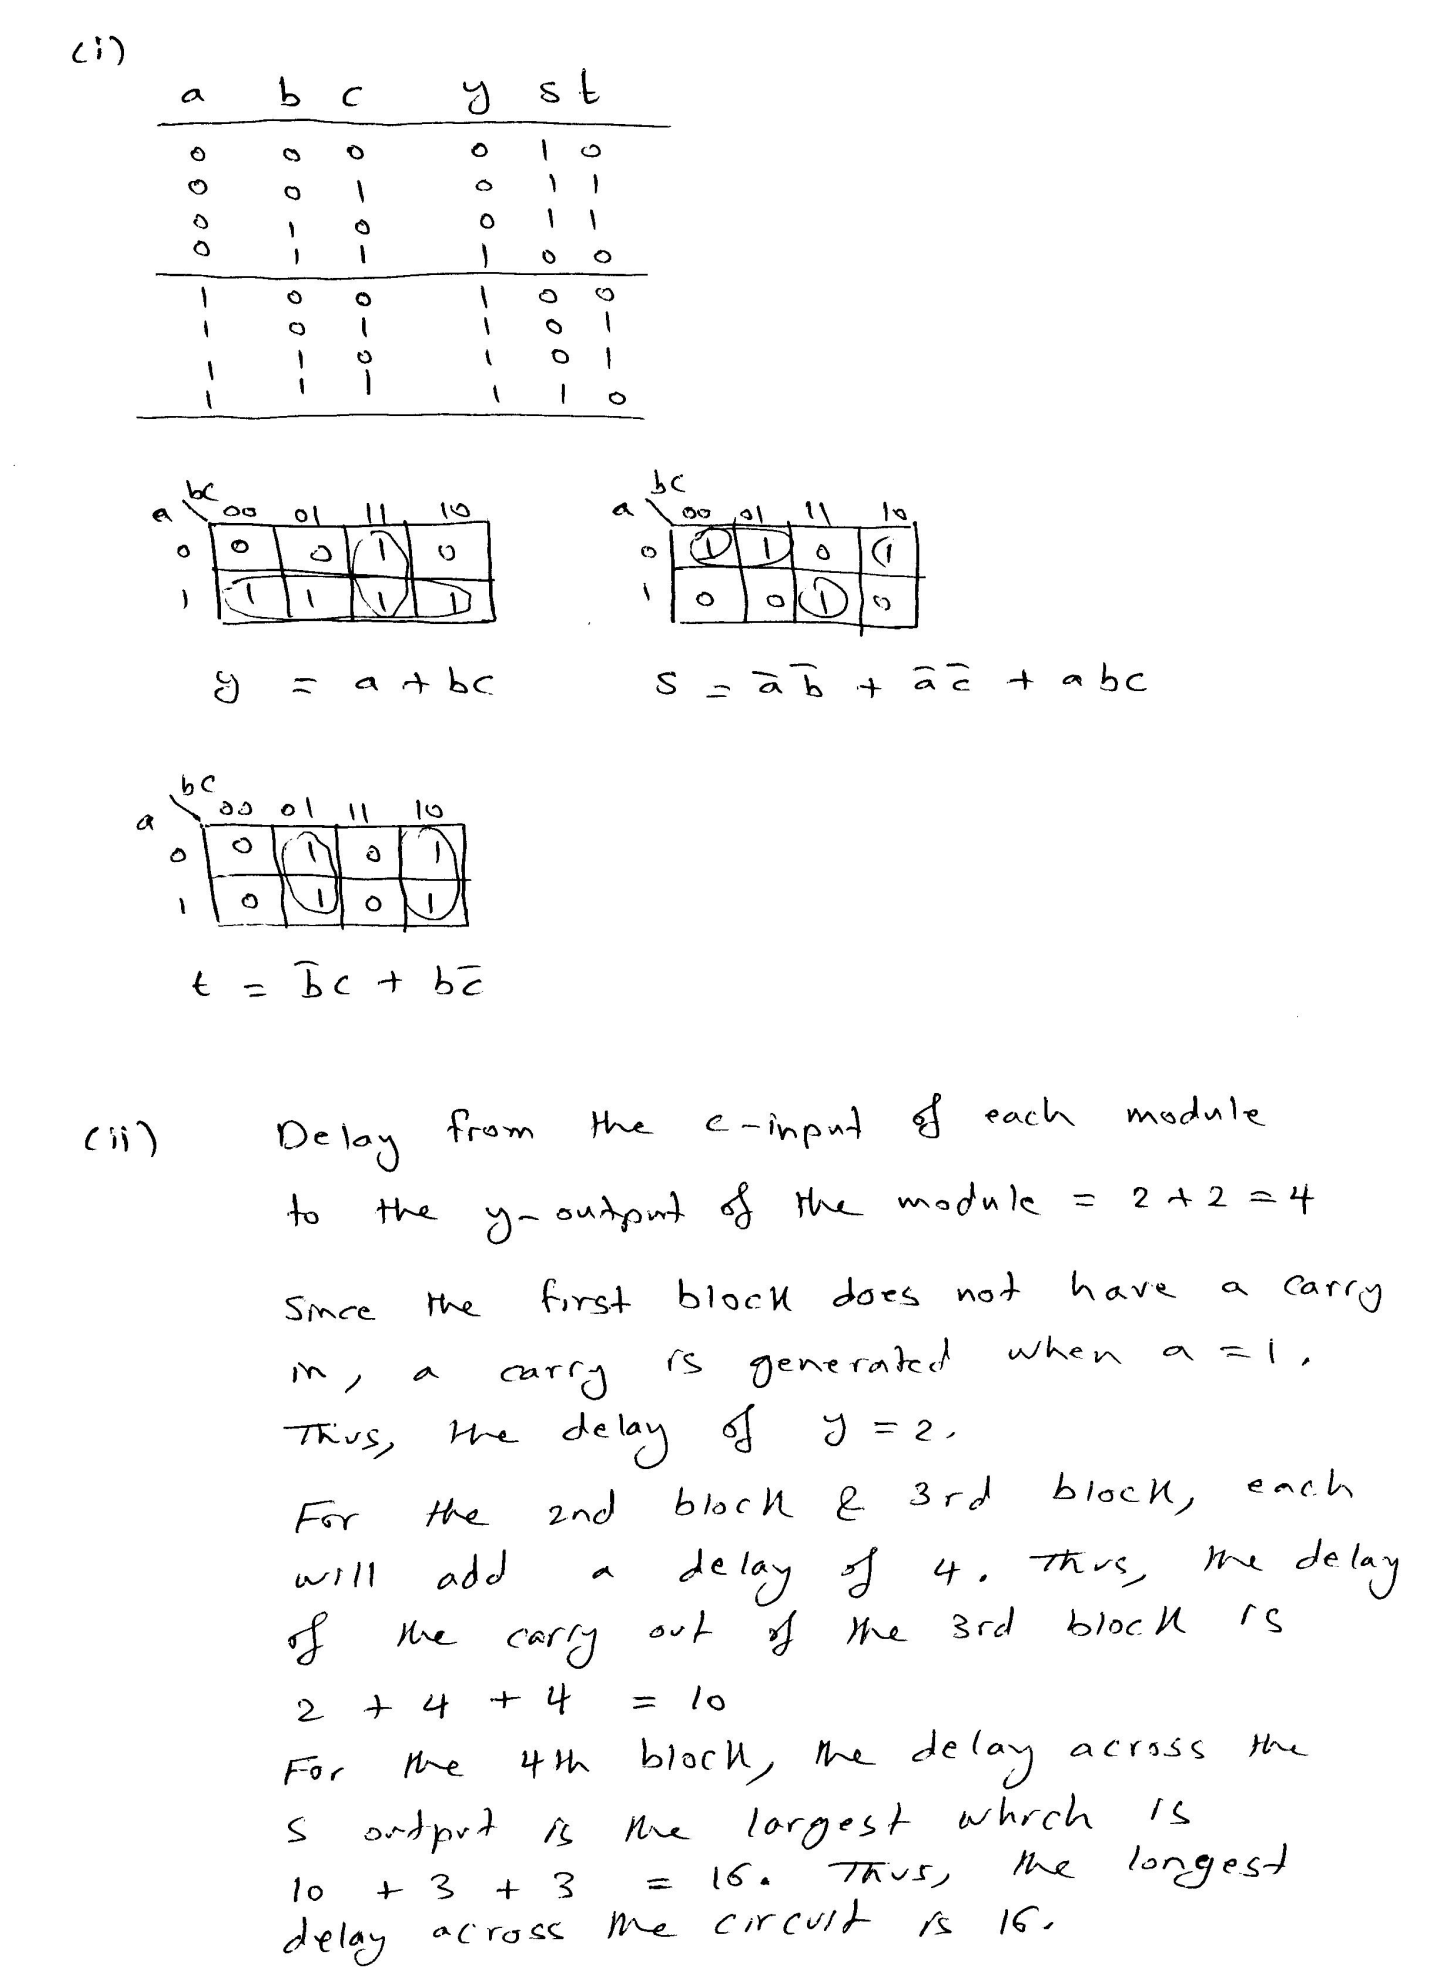 (i)
a b c y s t
0 0 0 0 1 0
0 0 1 0 1 1
0 1 0 0 1 1
0 1 1 1 0 0
1 0 0 1 0 0
1 0 1 1 0 1
1 1 0 1 0 1
1 1 1 1 1 0
bc
a 00 01 11 10
0 0 0 1 0
1 1 1 1 1
y = a + bc
bc
a 00 01 11 10
0 1 1 0 1
1 0 0 1 0
s = a̅ b̅ + a̅ c̅ + abc
bc
a 00 01 11 10
0 0 1 0 1
1 0 1 0 1
t = b̅c + bc̅
(ii) Delay from the c-input of each module
to the y-output of the module = 2+2=4
Since the first block does not have a carry
in, a carry is generated when a=1.
Thus, the delay of y=2.
For the 2nd block & 3rd block, each
will add a delay of 4. Thus, the delay
of the carry out of the 3rd block is
2 + 4 + 4 = 10
For the 4th block, the delay across the
s output is the largest which is
10 + 3 + 3 = 16. Thus, the longest
delay across the circuit is 16.